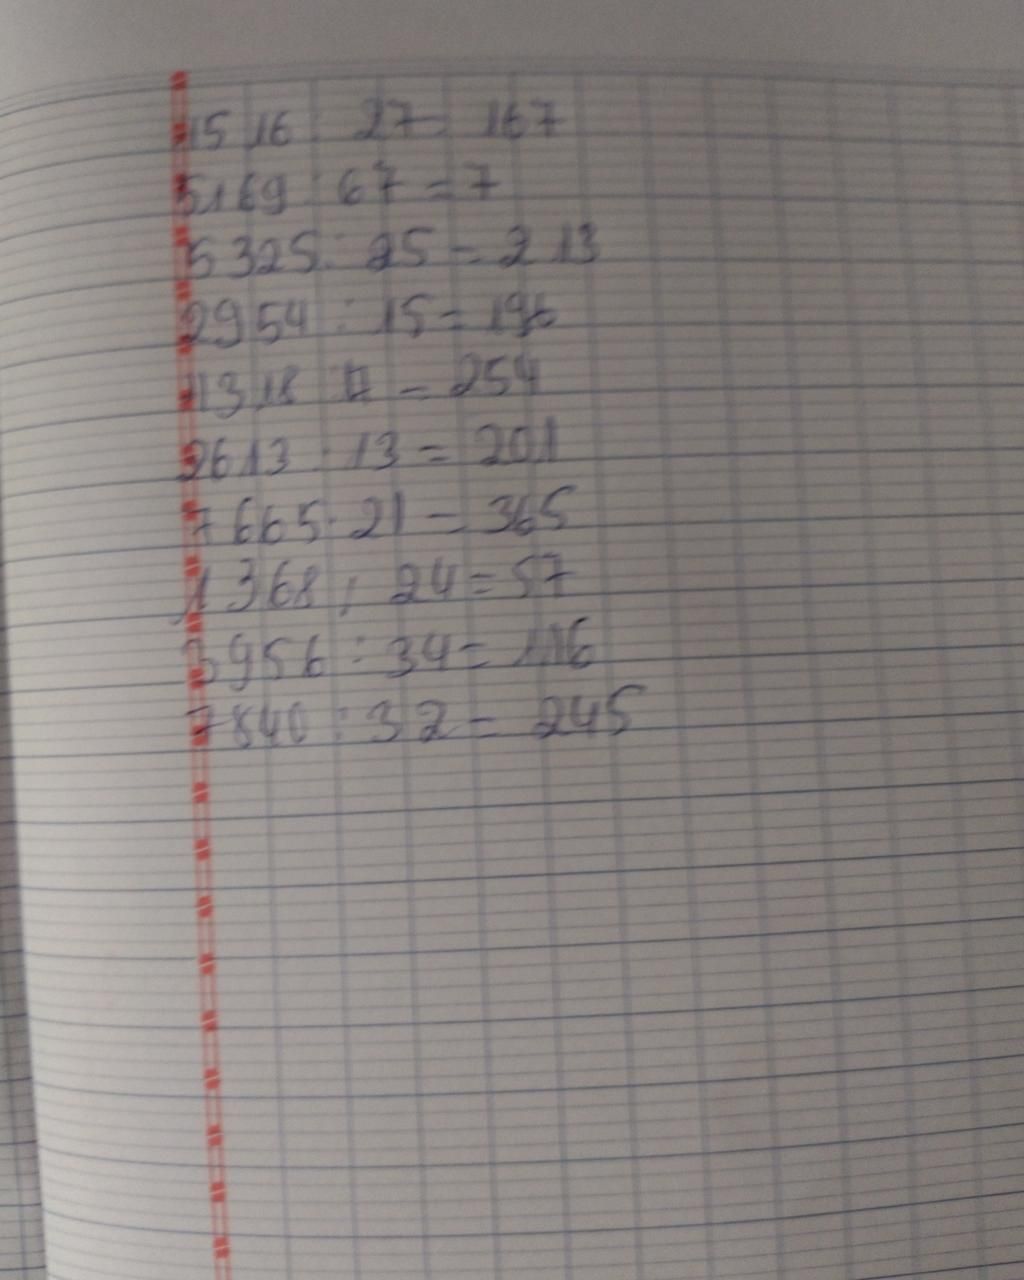 1516 : 27 = 167
5169 : 67 = 7
5325 : 25 = 213
2954 : 15 = 196
1318 : = 254
2613 : 13 = 201
7665 : 21 = 365
1368 : 24 = 57
3956 : 34 = 116
7840 : 32 = 245